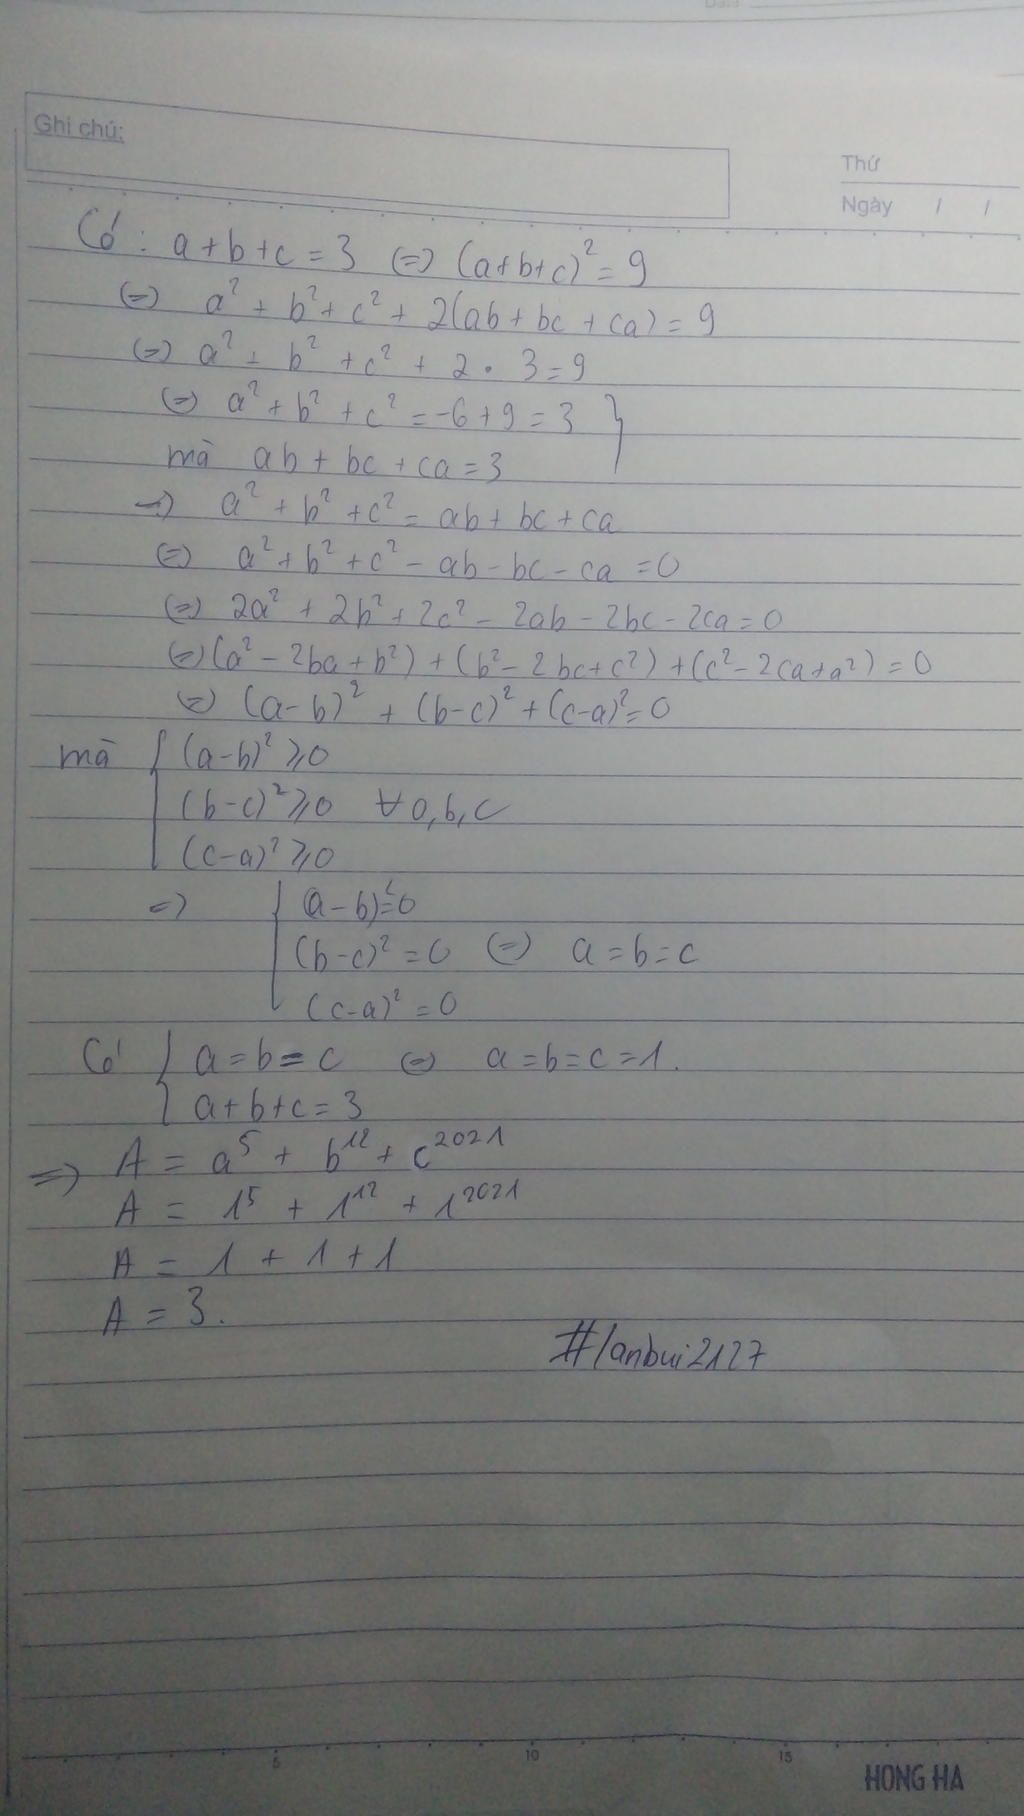 Ghi chú:
Thứ
Ngày / /
Có: a + b + c = 3 (=) (a+b+c)² = 9
(=) a² + b² + c² + 2(ab + bc + ca) = 9
(=) a² + b² + c² + 2 . 3 = 9
(=) a² + b² + c² = -6 + 9 = 3 }
mà ab + bc + ca = 3
=) a² + b² + c² = ab + bc + ca
(=) a² + b² + c² - ab - bc - ca = 0
(=) 2a² + 2b² + 2c² - 2ab - 2bc - 2ca = 0
(=) (a² - 2ba + b²) + (b² - 2bc + c²) + (c² - 2ca + a²) = 0
(=) (a-b)² + (b-c)² + (c-a)² = 0
mà { (a-b)² ≥ 0
(b-c)² ≥ 0 ∀ a, b, c
(c-a)² ≥ 0
=) { (a-b)² = 0
(b-c)² = 0 (=) a = b = c
(c-a)² = 0
Có { a = b = c (=) a = b = c = 1.
a + b + c = 3
=) A = a⁵ + b¹² + c²⁰²¹
A = 1⁵ + 1¹² + 1²⁰²¹
A = 1 + 1 + 1
A = 3.
#lanbui2127
5 10 15
HONG HA